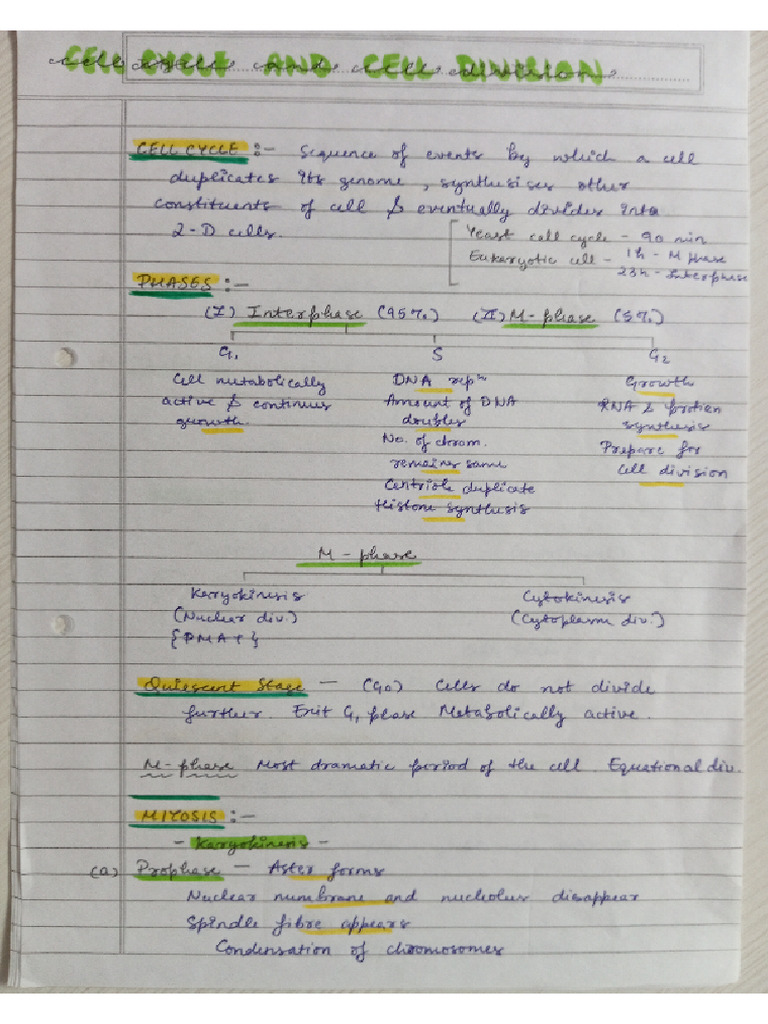 CELL CYCLE AND CELL DIVISION
CELL CYCLE :- Sequence of events by which a cell
duplicates its genome, synthesises other
constituents of cell & eventually divides into
2-D cells.
Yeast cell cycle - 90 min
Eukaryotic cell - 1h - M phase
23h - Interphase
PHASES :-
(I) Interphase (95%) (II) M-phase (5%)
G1 S G2
Cell metabolically DNA repn Growth
active & continuous Amount of DNA RNA & protien
growth. doubles synthesis
No. of chrom. Prepare for
remains same cell division
Centriole duplicate
Histone synthesis
M - phase
Karyokinesis Cytokinesis
(Nuclear div.) (Cytoplasm div.)
{PMAT}
Quiescent Stage - (G0) Cells do not divide
further. Exit G1 phase. Metabolically active.
M-phase Most dramatic period of the cell. Equational div.
MITOSIS :-
- Karyokinesis -
(a) Prophase - Aster forms
Nuclear membrane and nucleolus disappear
Spindle fibre appears
Condensation of chromosomes